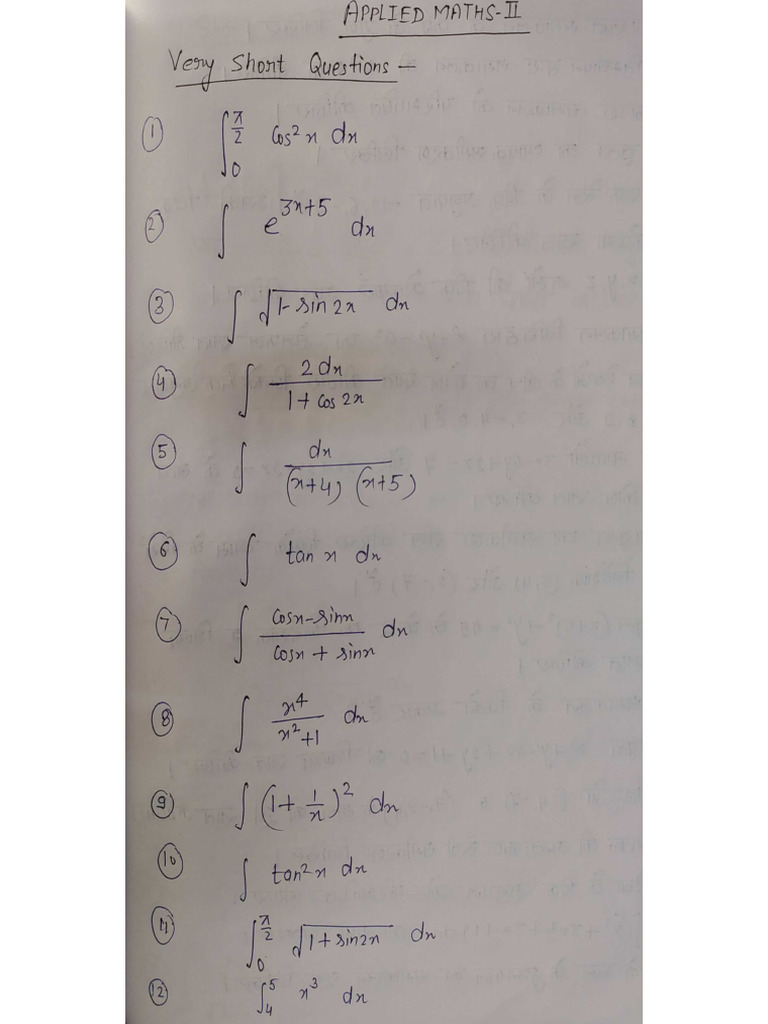 APPLIED MATHS-II
Very Short Questions —
① ∫₀^{π/2} Cos²x dx
② ∫ e^{3x+5} dx
③ ∫ √(1- sin 2x) dx
④ ∫ 2dx / (1+ Cos 2x)
⑤ ∫ dx / (x+4) (x+5)
⑥ ∫ tan x dx
⑦ ∫ (Cosx-sinx) / (Cosx + sinx) dx
⑧ ∫ x⁴ / (x²+1) dx
⑨ ∫ (1+ 1/x)² dx
⑩ ∫ tan²x dx
⑪ ∫₀^{π/2} √(1+sin2x) dx
⑫ ∫₄⁵ x³ dx